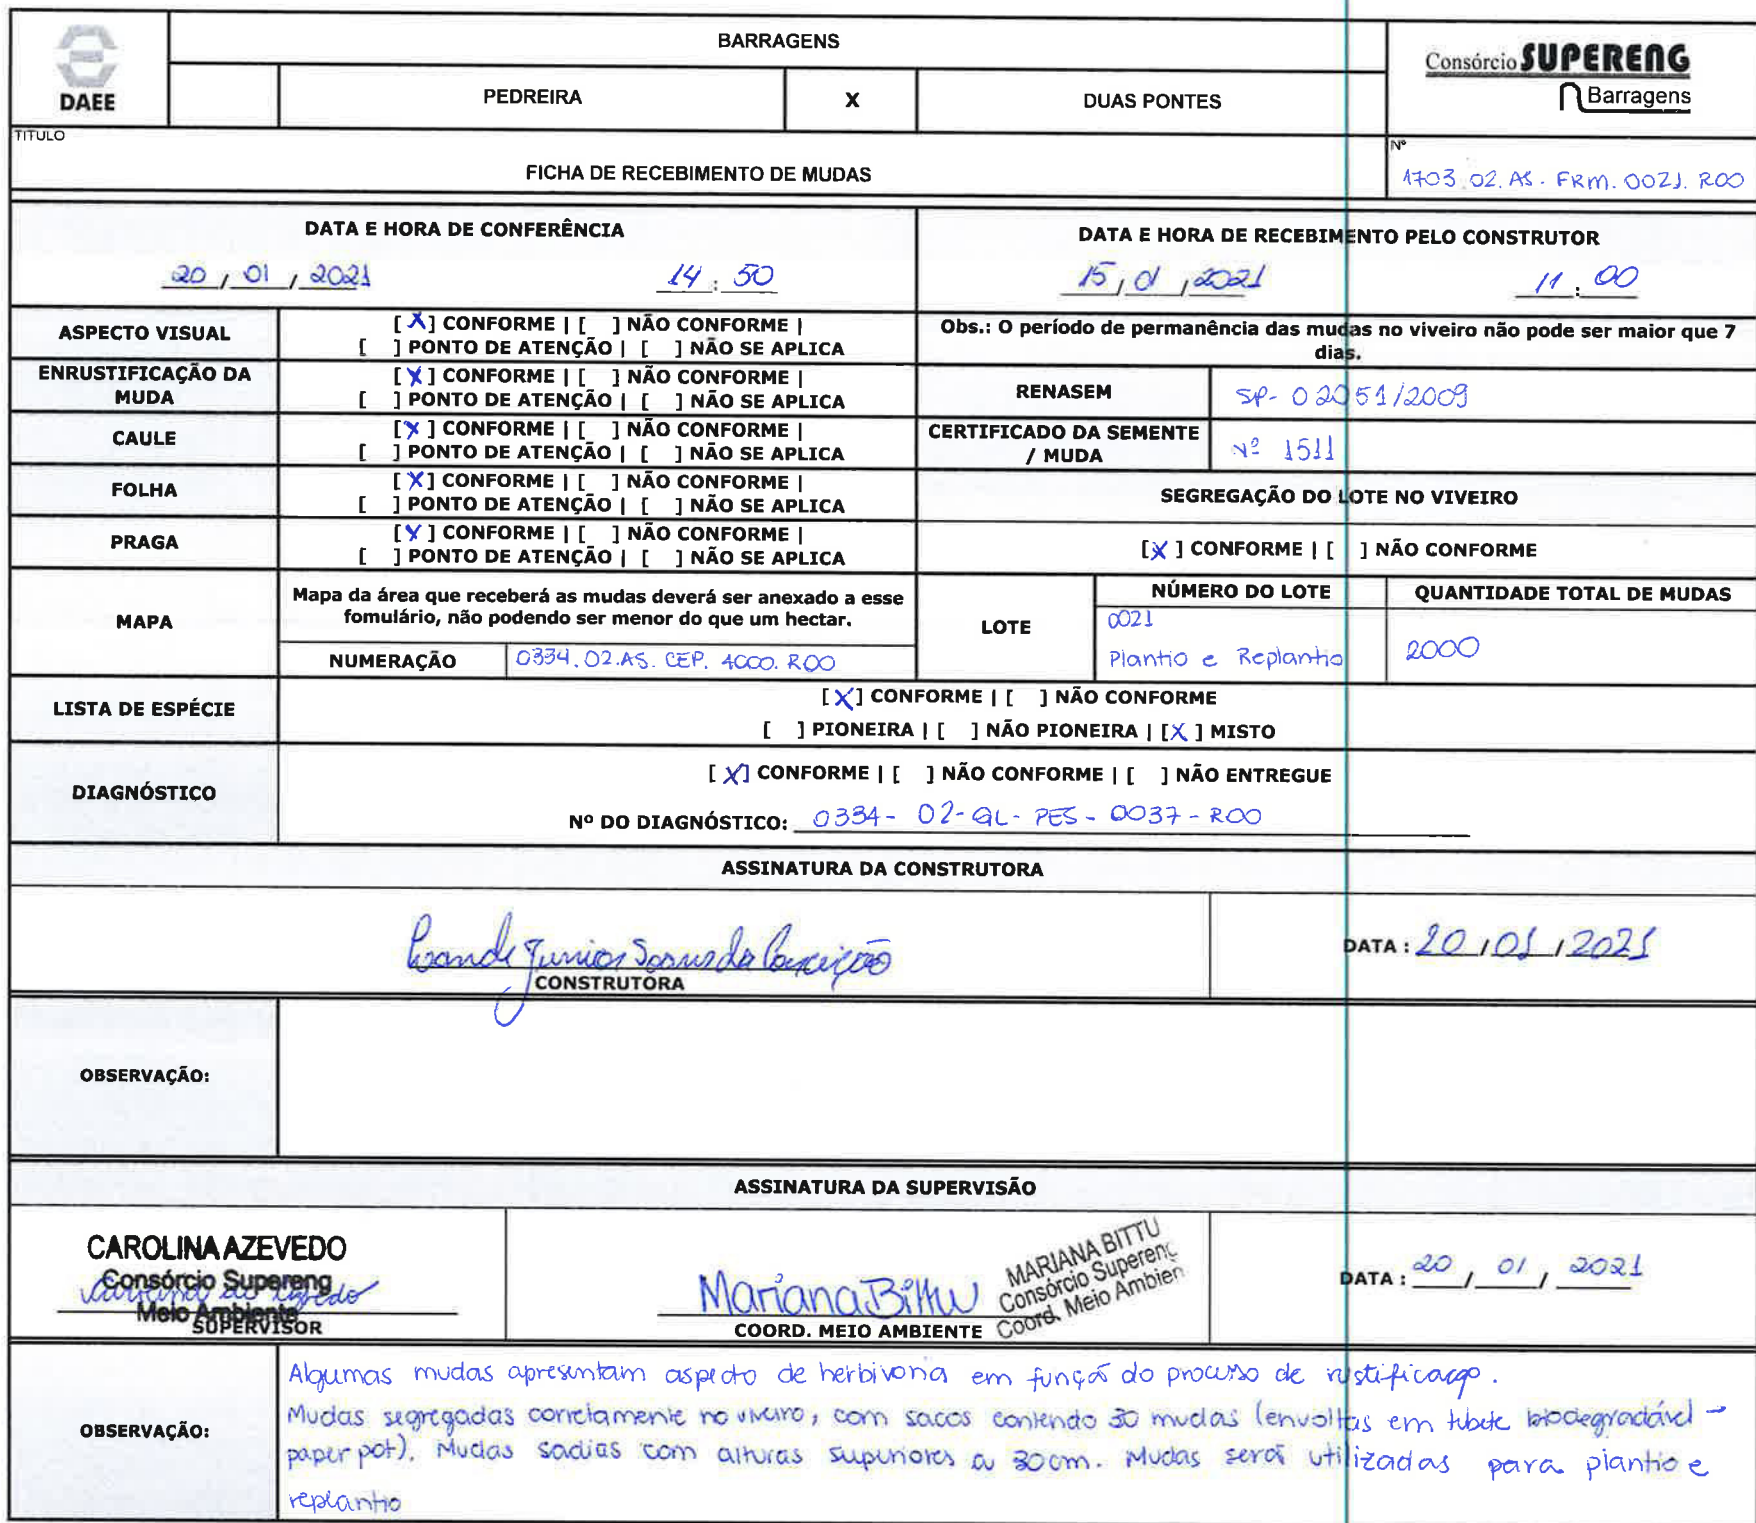 DAEE
BARRAGENS
PEDREIRA
X
DUAS PONTES
Consórcio SUPERENG
Barragens
TITULO
FICHA DE RECEBIMENTO DE MUDAS
Nº
1703.02.AS.FRM.0021.R00
DATA E HORA DE CONFERÊNCIA
20 / 01 / 2021 14 : 50
DATA E HORA DE RECEBIMENTO PELO CONSTRUTOR
15 / 01 / 2021 11 : 00
ASPECTO VISUAL
[ X ] CONFORME | [ ] NÃO CONFORME |
[ ] PONTO DE ATENÇÃO | [ ] NÃO SE APLICA
Obs.: O período de permanência das mudas no viveiro não pode ser maior que 7
dias.
ENRUSTIFICAÇÃO DA
MUDA
[ X ] CONFORME | [ ] NÃO CONFORME |
[ ] PONTO DE ATENÇÃO | [ ] NÃO SE APLICA
RENASEM
SP- 02051/2009
CAULE
[ X ] CONFORME | [ ] NÃO CONFORME |
[ ] PONTO DE ATENÇÃO | [ ] NÃO SE APLICA
CERTIFICADO DA SEMENTE
/ MUDA
Nº 1511
FOLHA
[ X ] CONFORME | [ ] NÃO CONFORME |
[ ] PONTO DE ATENÇÃO | [ ] NÃO SE APLICA
SEGREGAÇÃO DO LOTE NO VIVEIRO
PRAGA
[ X ] CONFORME | [ ] NÃO CONFORME |
[ ] PONTO DE ATENÇÃO | [ ] NÃO SE APLICA
[ X ] CONFORME | [ ] NÃO CONFORME
MAPA
Mapa da área que receberá as mudas deverá ser anexado a esse
fomulário, não podendo ser menor do que um hectar.
NUMERAÇÃO
0334.02.AS.CEP.4000.R00
LOTE
NÚMERO DO LOTE
0021
Plantio e Replantio
QUANTIDADE TOTAL DE MUDAS
2000
LISTA DE ESPÉCIE
[ X ] CONFORME | [ ] NÃO CONFORME
[ ] PIONEIRA | [ ] NÃO PIONEIRA | [ X ] MISTO
DIAGNÓSTICO
[ X ] CONFORME | [ ] NÃO CONFORME | [ ] NÃO ENTREGUE
Nº DO DIAGNÓSTICO: 0334- 02- GL- PES - 0037 - R00
ASSINATURA DA CONSTRUTORA
Junior da Conceição
CONSTRUTORA
DATA : 20 / 01 / 2021
OBSERVAÇÃO:
ASSINATURA DA SUPERVISÃO
CAROLINA AZEVEDO
Consórcio Supereng
Meio Ambiente
SUPERVISOR
Mariana Bittu
MARIANA BITTU
Consórcio Supereng
Coord. Meio Ambien
COORD. MEIO AMBIENTE
DATA : 20 / 01 / 2021
OBSERVAÇÃO:
Algumas mudas apresentam aspecto de herbivoria em função do processo de rustificação.
Mudas segregadas corretamente no viveiro, com sacos contendo 30 mudas (envoltas em tubete biodegradável -
paper pot). Mudas sadias com alturas superiores a 30cm. Mudas será utilizadas para plantio e
replantio